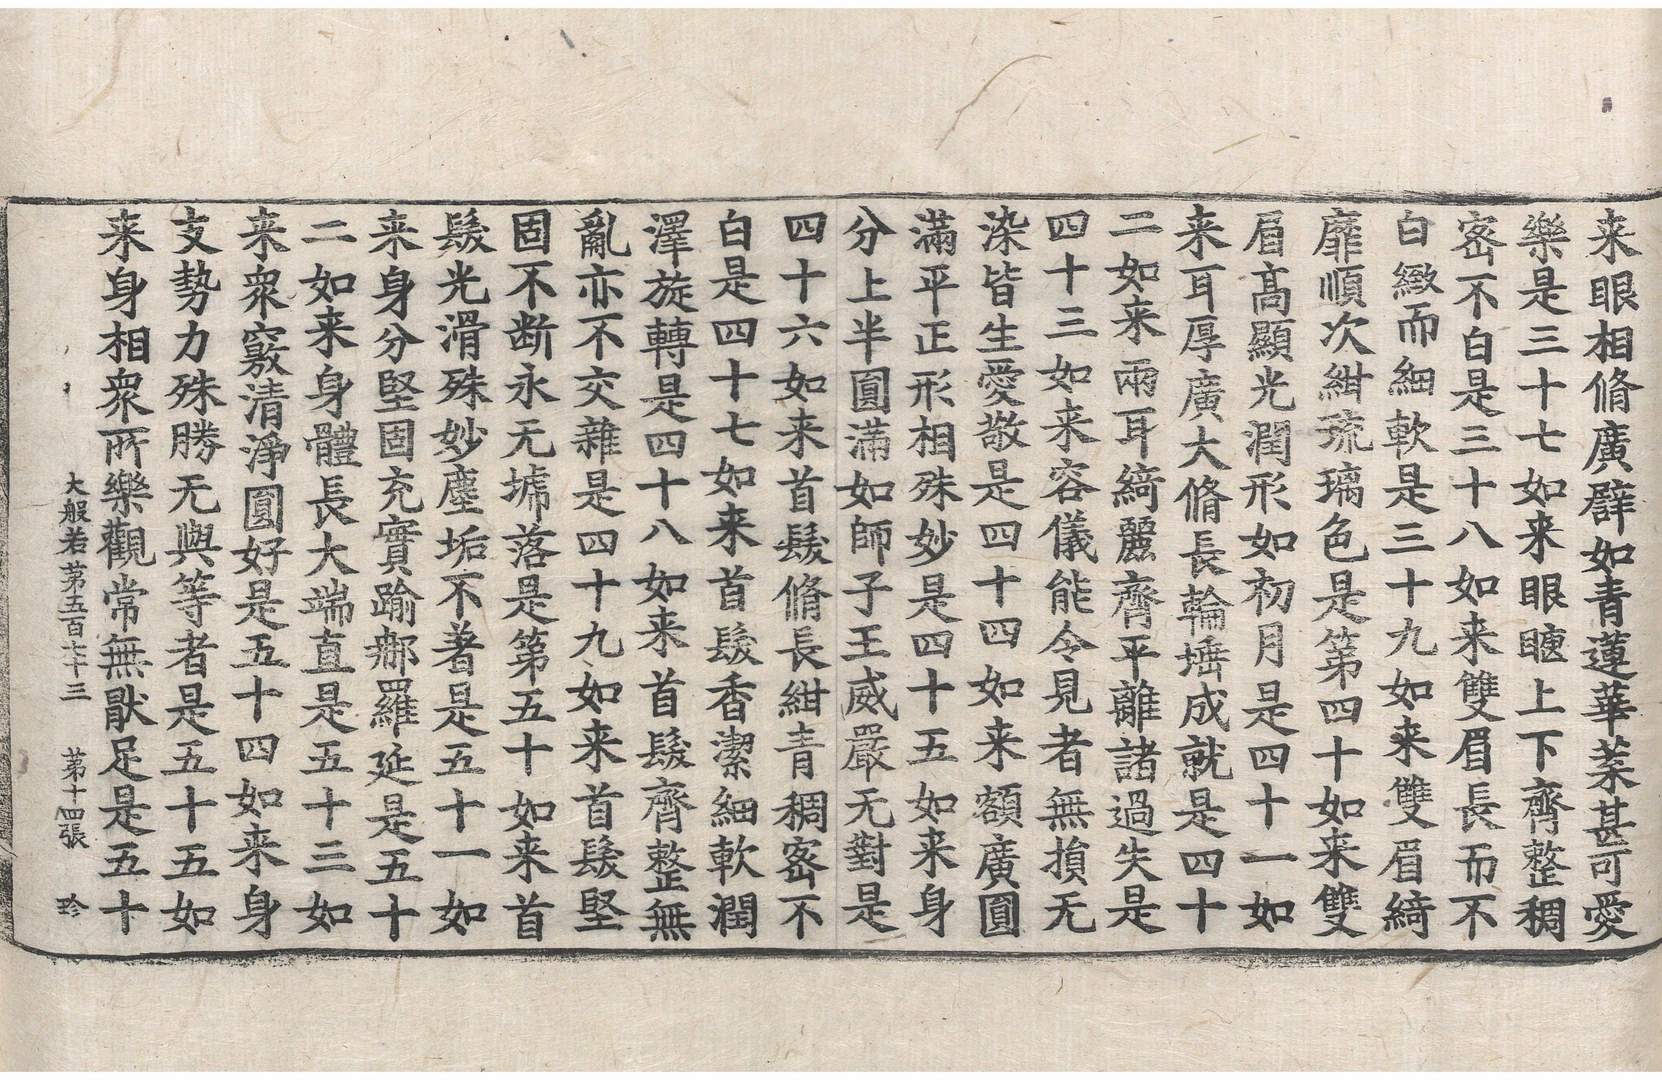 来眼相脩廣譬如青蓮華葉甚可愛
樂是三十七如来眼睫上下齊整稠
宻不白是三十八如来雙眉長而不
白緻而細軟是三十九如来雙眉綺
靡順次紺琉璃色是第四十如来雙
眉髙顯光潤形如初月是四十一如
来耳厚廣大脩長輪埵成就是四十
二如来兩耳綺麗齊平離諸過失是
四十三如来容儀能令見者無損无
染皆生愛敬是四十四如来額廣圓
滿平正形相殊妙是四十五如来身
分上半圓滿如師子王威嚴无對是
四十六如来首髮脩長紺青稠宻不
白是四十七如来首髮香潔細軟潤
澤旋轉是四十八如来首髮齊整無
亂亦不交雜是四十九如来首髮堅
固不断永无墆落是第五十如来首
髮光滑殊妙塵垢不著是五十一如
来身分堅固充實踰那羅延是五十
二如来身體長大端直是五十三如
来衆竅清淨圓好是五十四如来身
支勢力殊勝无與等者是五十五如
来身相衆所樂觀常無猒足是五十
大般若苐五百七十三 苐十四張 珎